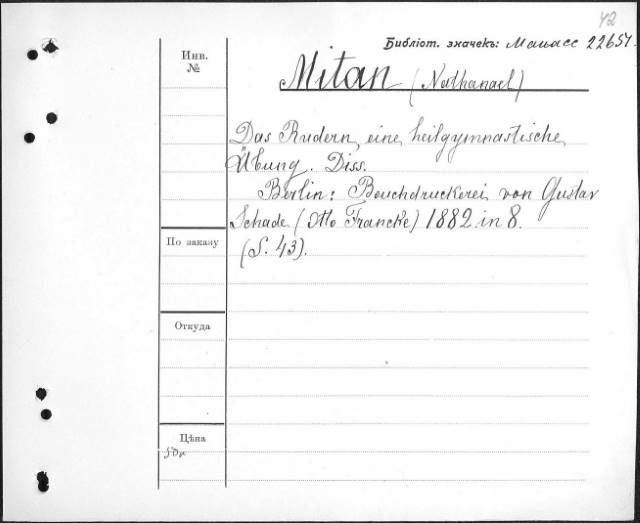 42
Библіот. значекъ: Манасс 22651.
Инв.
№
Mitan (Nathanael)
Das Rudern, eine heilgymnastische
Übung. Diss.
Berlin: Bouchdruckerei von Gustav
Schade (Otto Francke) 1882 in 8.
(S. 43).
По заказу
Откуда
Цѣна
50к